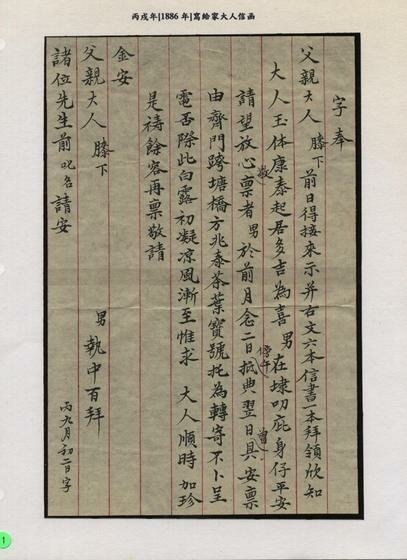 丙戌年[1886 年]寫給家大人信函
字奉
父親大人 膝下 前日得接來示并古文六本信書一本拜領欣知
大人玉体康泰起居多吉為喜 男 在埭叨庇身仔平安
請望放心 敬 禀者 男 於前月念二日 傍午 抵典翌日 曾 具安禀
由齊門跨塘橋方兆泰茶葉寶號托為轉寄不卜呈
電否際此白露初凝凉風漸至惟求 大人順時加珍
是禱餘容再禀敬請
金安
父親大人 膝下
諸位先生前 叱名 請安
男 執中百拜
丙九月初二日字
1